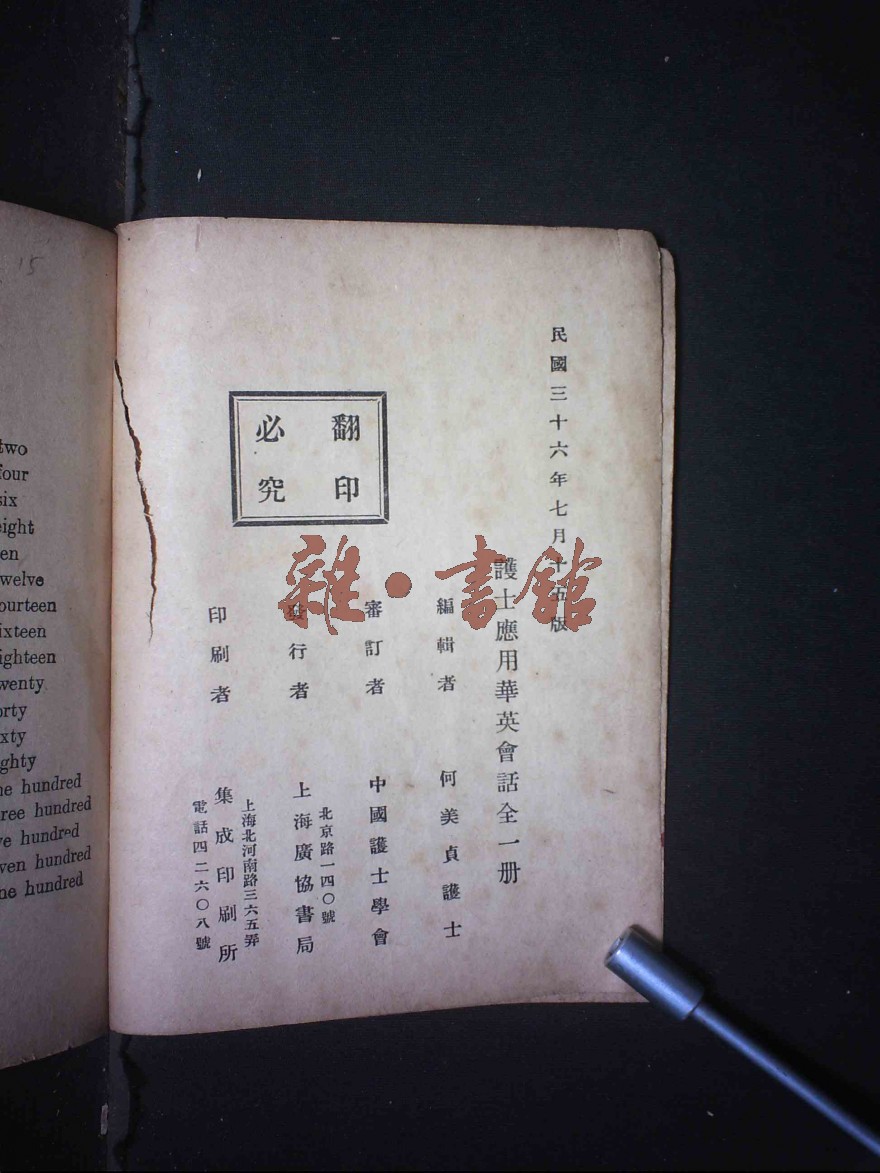 民國三十六年七月十五版
護士應用華英會話全一册
編輯者 何美貞護士
審訂者 中國護士學會
北京路一四〇號
發行者 上海廣協書局
上海北河南路三六五弄
印刷者 集成印刷所
電話四二六〇八號
翻印
必究
雜·書館
15
two
four
six
eight
en
welve
ourteen
ixteen
ighteen
wenty
orty
xty
ghty
ne hundred
ree hundred
ve hundred
ven hundred
ne hundred